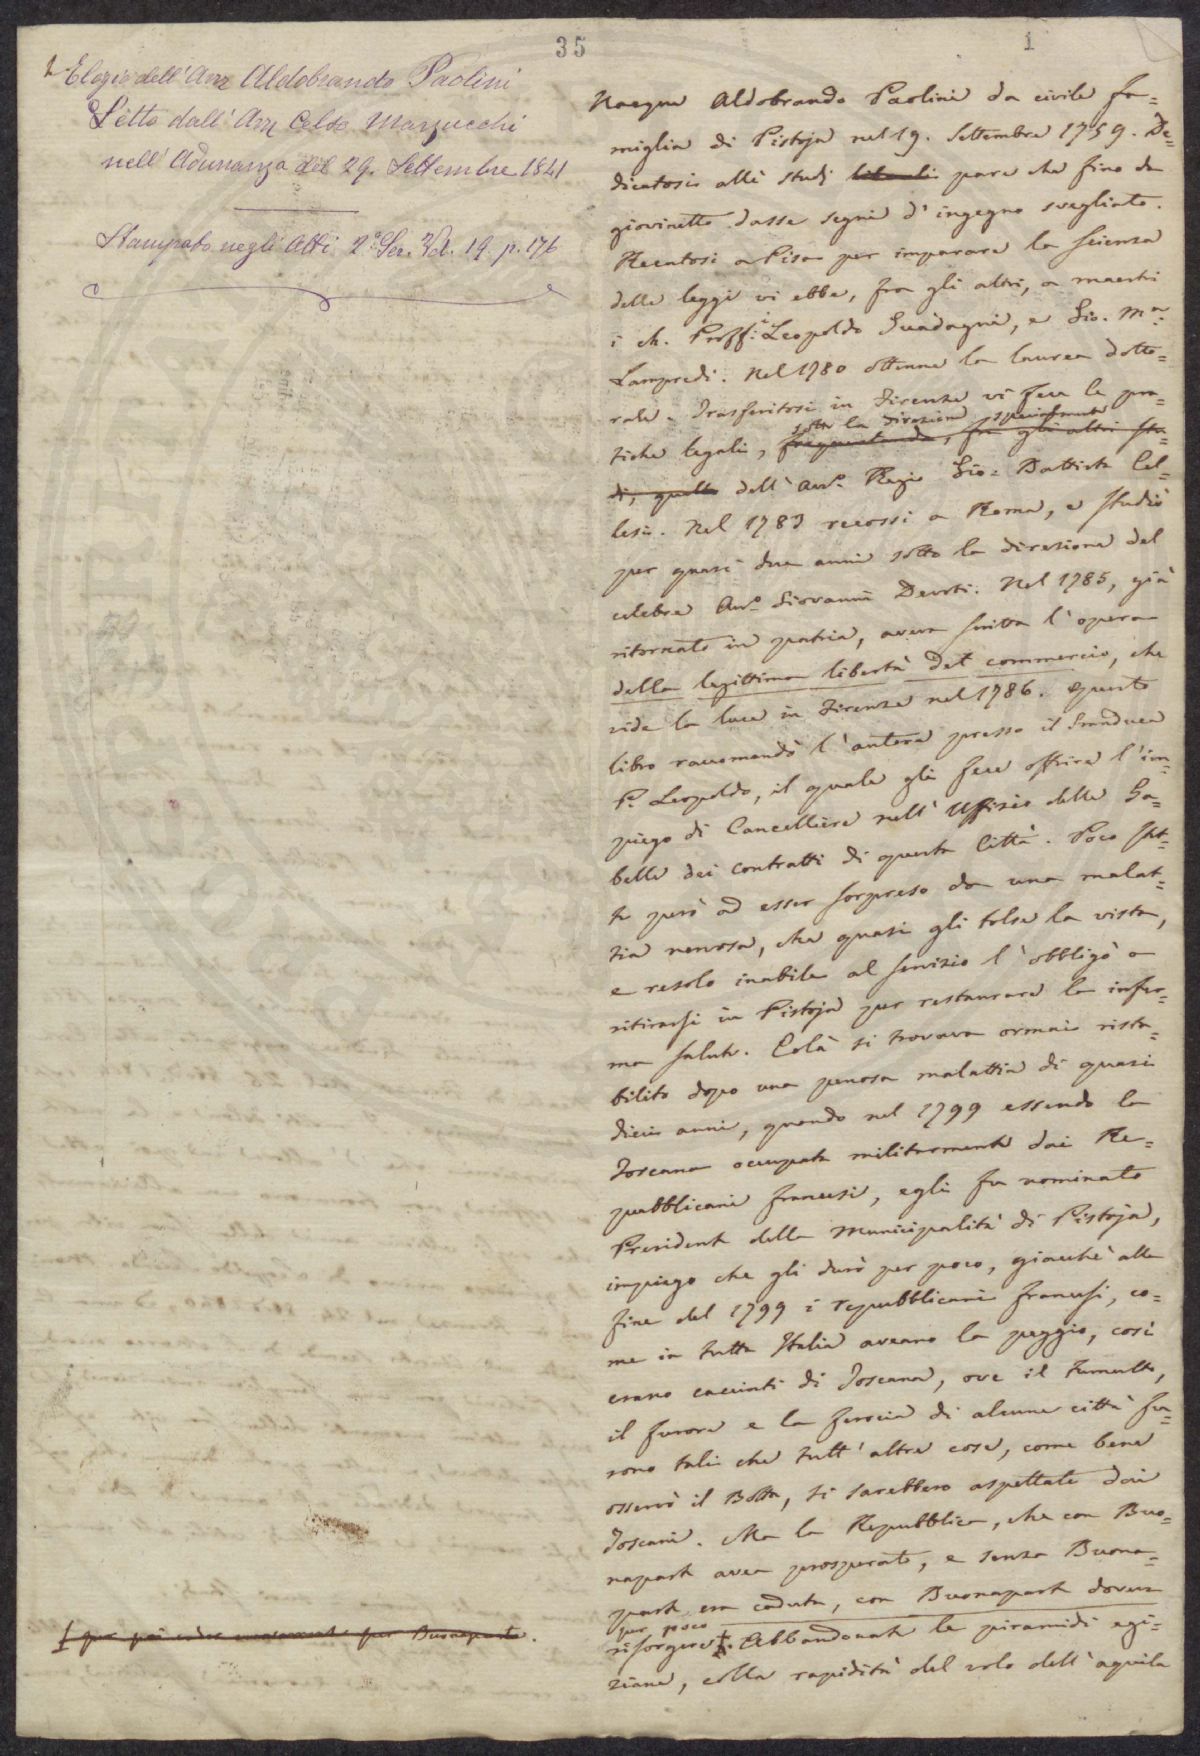 35
1
Elogio dell'Avv Aldobrando Paolini
Letto dall'Avv Celso Marzucchi
nell'Adunanza del 29. Settembre 1841
Stampato negli Atti 2ª Ser. Vol. 19. p. 176
Nacque Aldobrando Paolini da civile fa=
miglia di Pistoja nel 19. Settembre 1759. De=
dicatosi alli studj liberali pare che fino da
giovinetto dasse segni d'ingegno svegliato.
Recatosi a Pisa per imparare la scienza
delle leggi vi ebbe, fra gli altri, a maestri
i ch. Proff.i Leopoldo Guadagni, e Gio. Ma.
Lampredi. Nel 1780 ottenne la laurea dotto=
rale. Trasferitosi in Firenze vi fece le pra=
sotto la direzione specialmente
tiche legali, frequentando, fra gli altri stu=
dj, quello dell'Avv.o Regio Gio: Battista Cel=
lesi. Nel 1783 recossi a Roma, e studiò
per quasi due anni sotto la direzione del
celebre Avv.o Giovanni Devoti. Nel 1785, già
ritornato in patria, aveva scritta l'opera
della legittima libertà del commercio, che
vide la luce in Firenze nel 1786. Questo
libro raccomandò l'autore presso il Granduca
P. Leopoldo, il quale gli fece offrire l'im=
piego di Cancelliere nell'Uffizio delle Ga=
belle dei contratti di questa Città. Poco stet=
te però ad esser sorpreso da una malat=
tia nervosa, che quasi gli tolse la vista,
e resolo inabile al servizio l'obbligò a
ritirarsi in Pistoja per restaurare la infer=
ma salute. Colà si trovava ormai rista=
bilito dopo una penosa malattia di quasi
dieci anni, quando nel 1799 essendo la
Toscana occupata militarmente dai Re=
pubblicani francesi, egli fu nominato
Presidente della Municipalità di Pistoja,
impiego che gli durò per poco, giacchè alla
fine del 1799 i repubblicani francesi, co=
me in tutta Italia aveano la peggio, così
erano cacciati di Toscana, ove il tumulto,
il furore e la ferocia di alcune città fu=
rono tali che tutt'altre cose, come bene
osservò il Botta, si sarebbero aspettate dai
Toscani. Ma la Repubblica, che con Buo=
naparte avea prosperato, e senza Buona=
parte era caduta, con Buonaparte dovea
per poco
risorgere. Abbandonate le piramidi egi=
ziane, colla rapidità del volo dell'aquila
per poi cader nuovamente per Buonaparte.